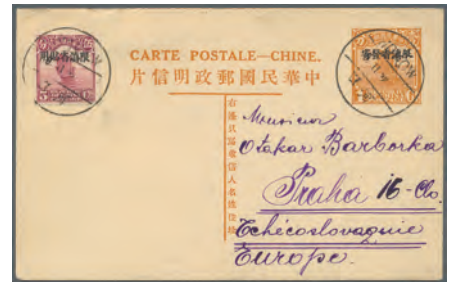 CARTE POSTALE—CHINE.
中華民國郵政明信片
右邊只寫收信人名姓住址
Monsieur
Otakar Barborka
Praha 16-Clo.
Tchécoslovaquie
Europe.